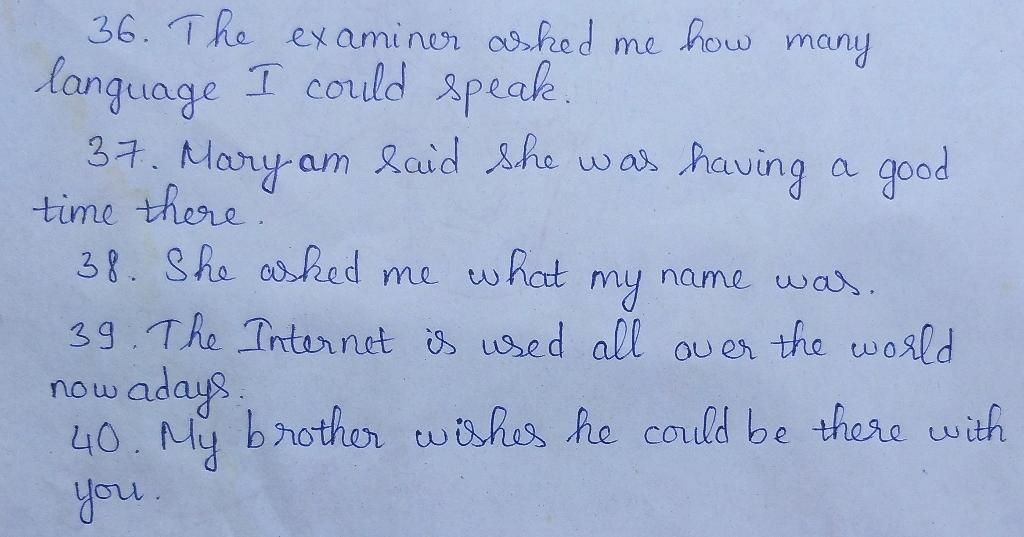 36. The examiner asked me how many
language I could speak.
37. Maryam said she was having a good
time there.
38. She asked me what my name was.
39. The Internet is used all over the world
nowadays.
40. My brother wishes he could be there with
you.